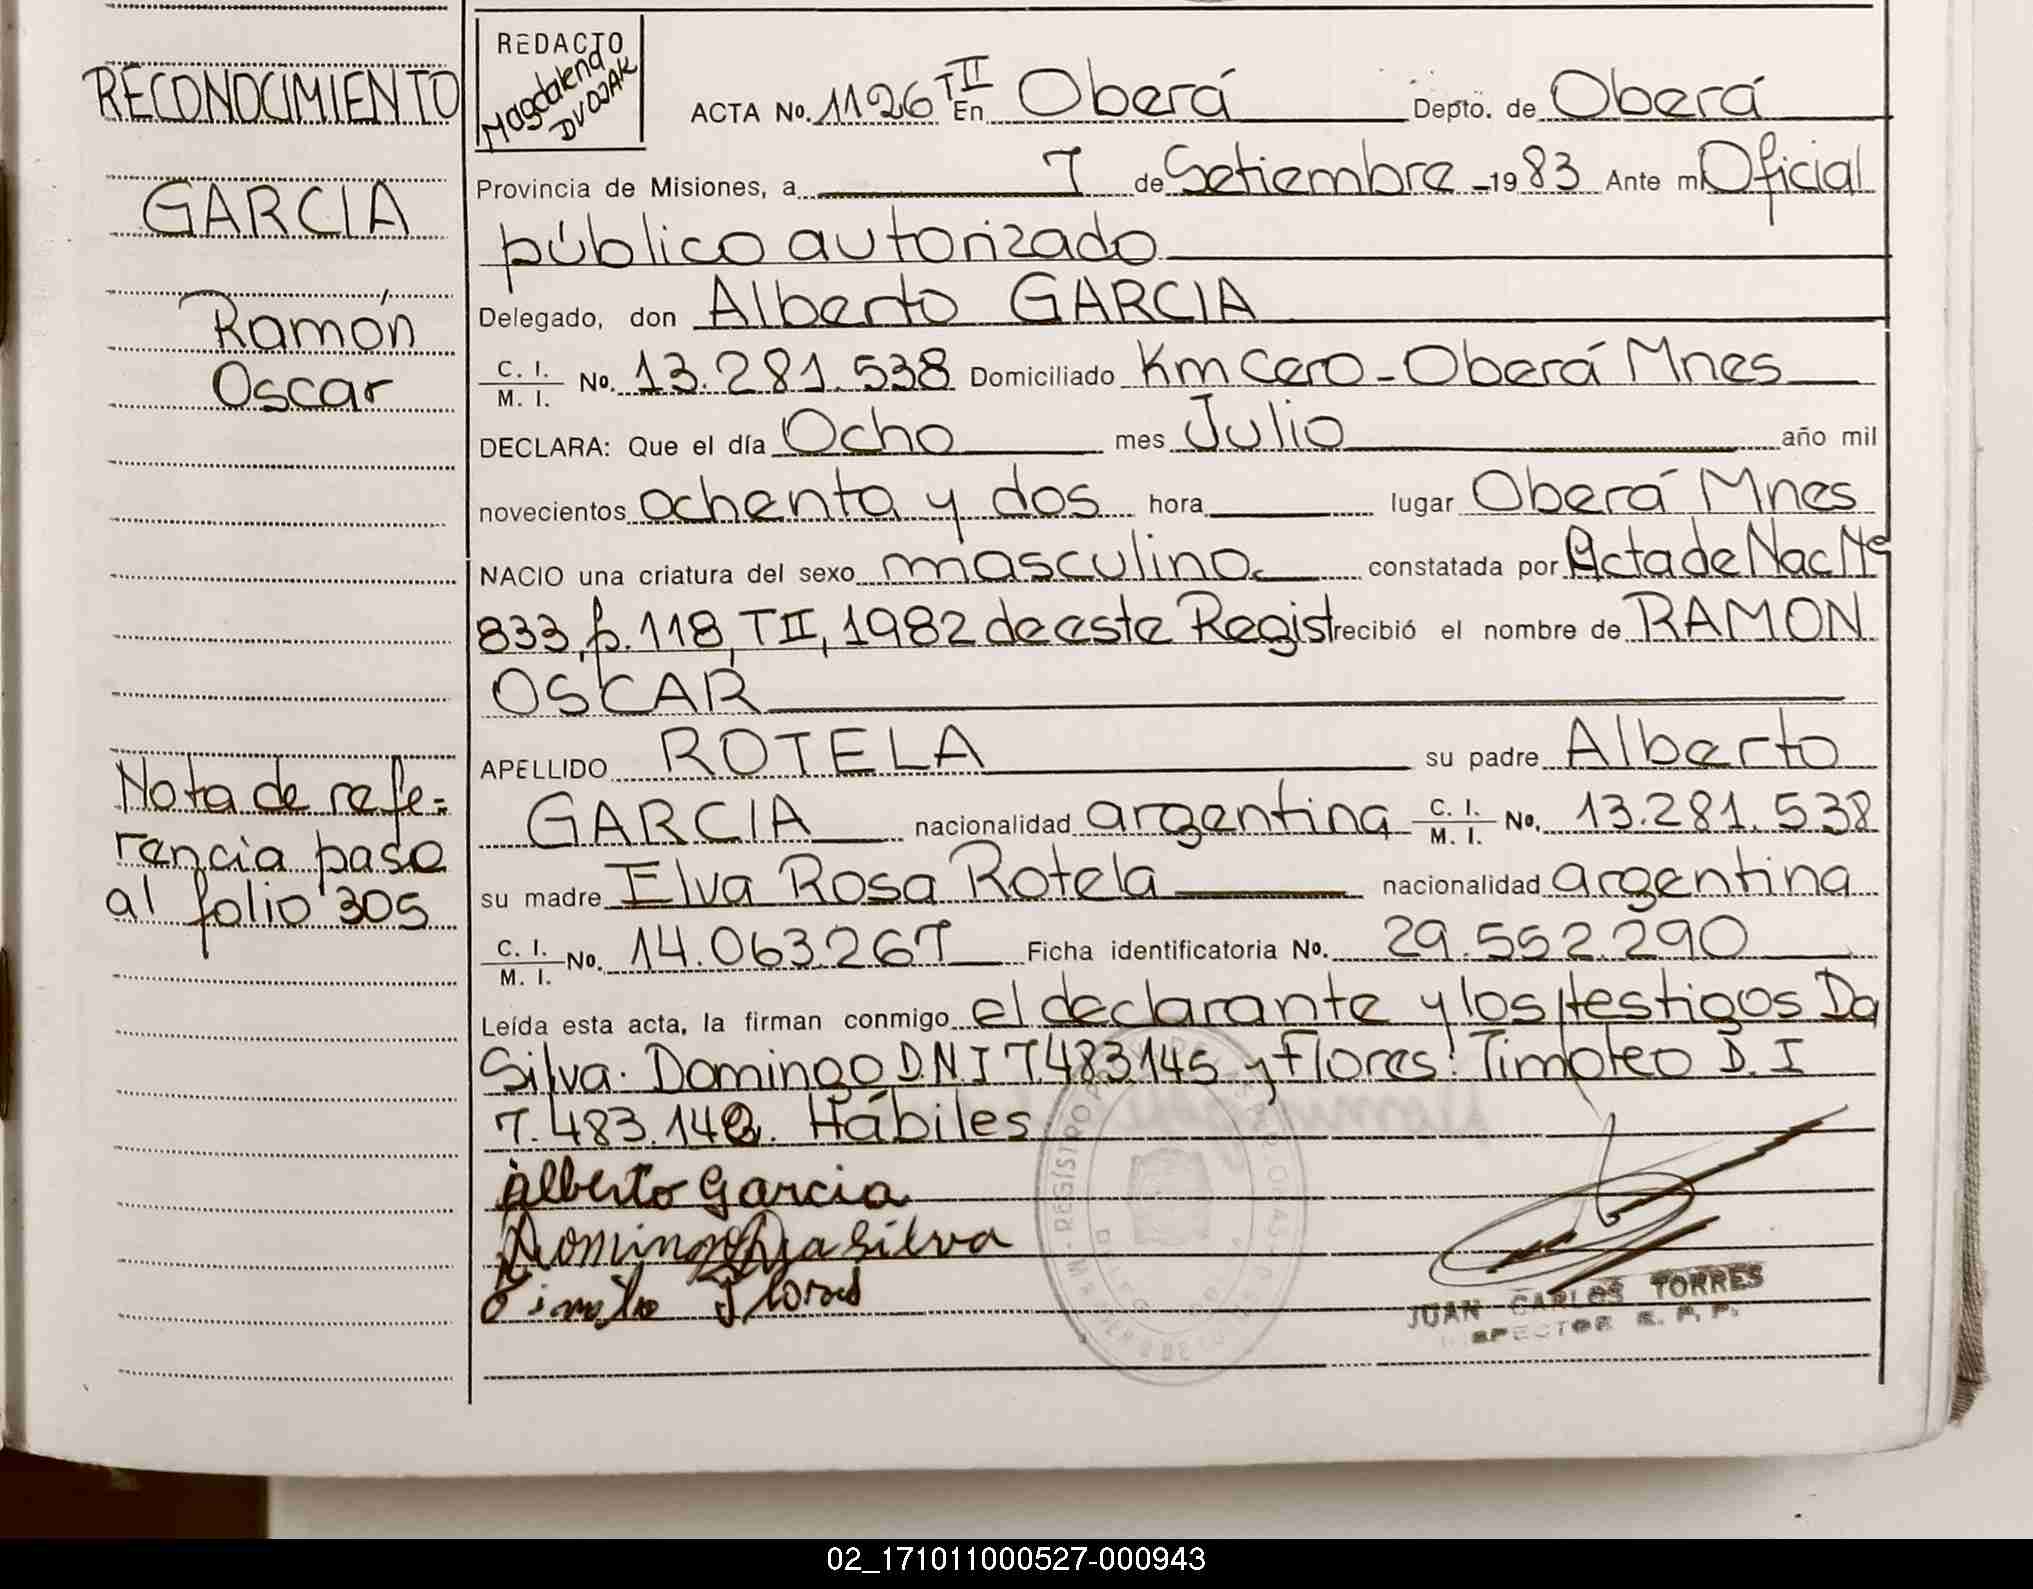 RECONOCIMIENTO
GARCIA
Ramón
Oscar
Nota de refe=
rencia pase
al folio 305
REDACTO
Magdalena
DVOJAK
ACTA No. 1126 TII En Oberá Depto. de Oberá
Provincia de Misiones, a 7 de Setiembre 1983 Ante mi Oficial
público autorizado
Delegado, don Alberto GARCIA
C. I. / M. I. No. 13.281.538 Domiciliado Km Cero - Oberá Mnes
DECLARA: Que el día Ocho mes Julio año mil
novecientos ochenta y dos hora lugar Oberá Mnes
NACIO una criatura del sexo masculino constatada por Acta de Nac Nº
833, f. 118, TII, 1982 de este Regist recibió el nombre de RAMON
OSCAR
APELLIDO ROTELA su padre Alberto
GARCIA nacionalidad argentina C. I. / M. I. No. 13.281.538
su madre Elva Rosa Rotela nacionalidad argentina
C. I. / M. I. No. 14.063.267 Ficha identificatoria No. 29.552.290
Leída esta acta, la firman conmigo el declarante y los testigos Da
Silva. Domingo D.N.I 7.483.145 y Flores. Timoteo D. I
7.483.142. Hábiles
Alberto Garcia
Domingo Da silva
Timoteo Flores
JUAN CARLOS TORRES
INSPECTOR R. P. P.
02_171011000527-000943